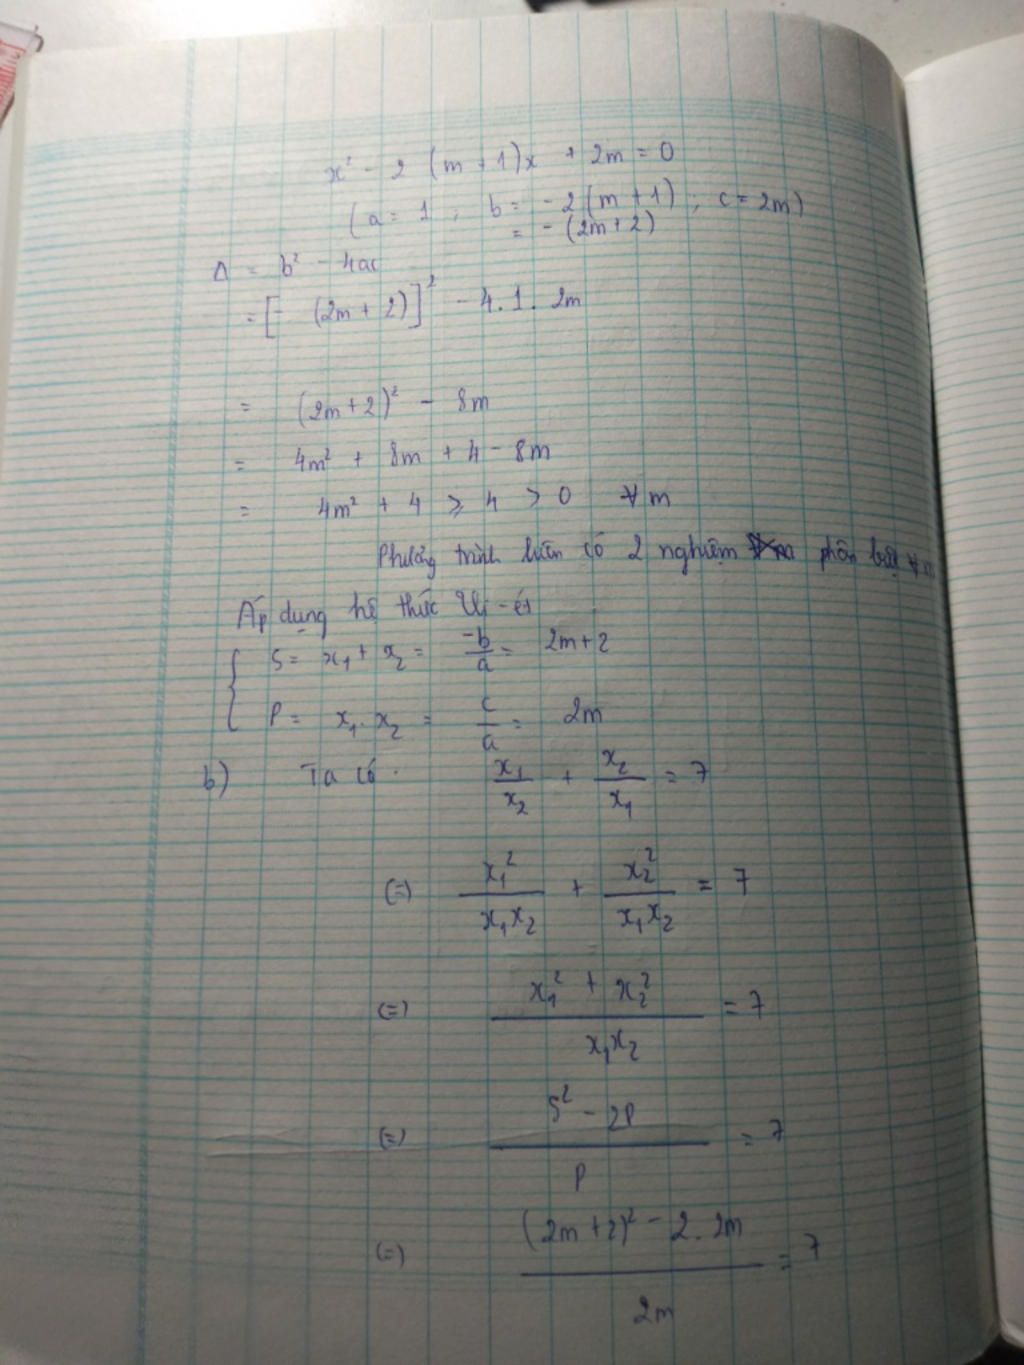 x² - 2 (m + 1)x + 2m = 0
(a = 1 ; b = - 2 (m + 1) ; c = 2m)
= - (2m + 2)
Δ = b² - 4ac
= [- (2m + 2)]² - 4.1.2m
= (2m + 2)² - 8m
= 4m² + 8m + 4 - 8m
= 4m² + 4 ⩾ 4 > 0 ∀m
Phương trình luôn có 2 nghiệm phân biệt ∀m
Áp dụng hệ thức Vi-ét
{ S = x₁ + x₂ = -b/a = 2m+2
P = x₁.x₂ = c/a = 2m
b) Ta có. x₁/x₂ + x₂/x₁ = 7
(=) x₁²/x₁x₂ + x₂²/x₁x₂ = 7
(=) (x₁² + x₂²)/x₁x₂ = 7
(=) (S² - 2P)/P = 7
(=) ((2m + 2)² - 2.2m)/2m = 7